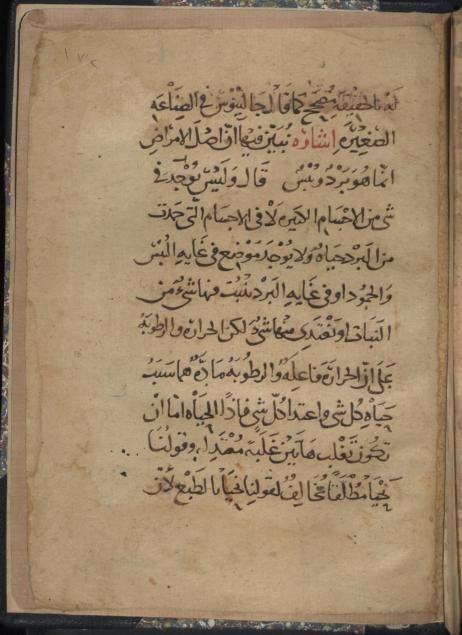 ١٧٢
بالحقيقة مصحح كما قال جالينوس في الصناعة
الصغيرة اشارة نبين فيها ان اصل الامراض
انما هو برد ويبس قال وليس يوجد في
شى من الاجسام الكبيرة لا فى الاجسام التى حدت
من البرد حياة ولا يوجد موضع فى غاية اليبس
والجمود او فى غاية البرد ينبت فيها شىء من
النبات او تغتدى منها شىء لكن الحرارة والرطوبة
على ان الحرارة فاعلة والرطوبة مادة هما سبب
حياة كل شى واعتدال كل شى فاذا الحياة اما ان
تكون تغلب هاتين غلبة معتدلة وقولنا
نحيا مطلقا مخالف لقولنا نحيا بالطبع لان